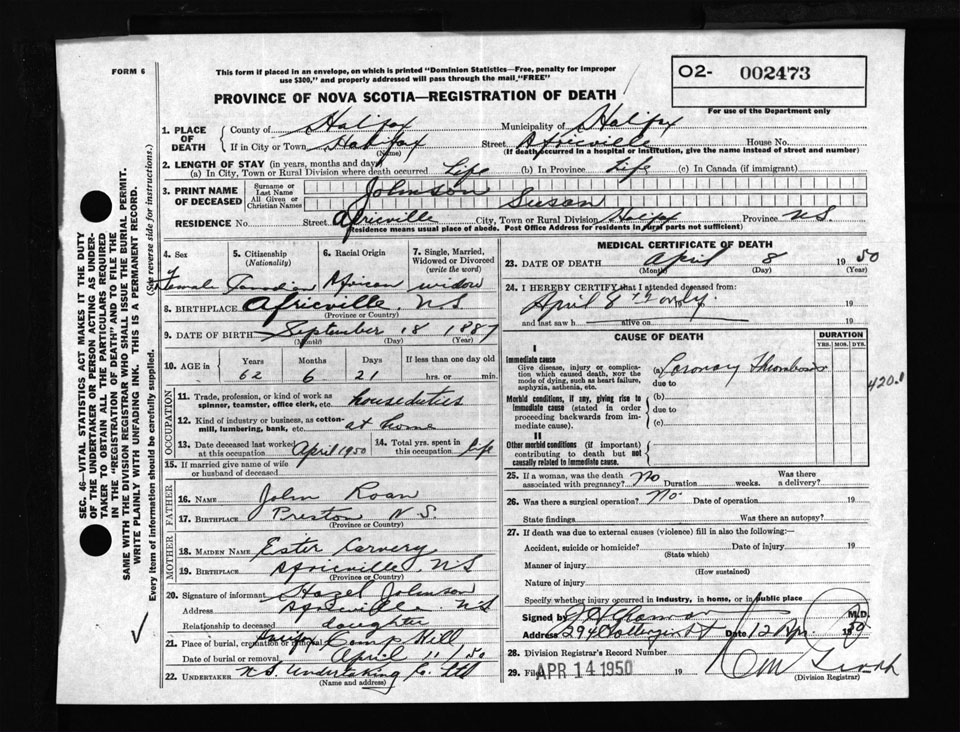 FORM 6
This form if placed in an envelope, on which is printed "Dominion Statistics—Free, penalty for improper
use $300," and properly addressed will pass through the mail "FREE"
O2- 002473
For use of the Department only
PROVINCE OF NOVA SCOTIA—REGISTRATION OF DEATH
1. PLACE OF DEATH
County of Halifax Municipality of Halifax
If in City or Town Halifax Street Africville House No.
(Name) (If death occurred in a hospital or institution, give the name instead of street and number)
2. LENGTH OF STAY (in years, months and days)
(a) In City, Town or Rural Division where death occurred Life (b) In Province Life (c) In Canada (if immigrant)
3. PRINT NAME OF DECEASED
Surname or Last Name Johnson
All Given or Christian Names Susan
RESIDENCE No. Street Africville City, Town or Rural Division Halifax Province N.S.
(Residence means usual place of abode. Post Office Address for residents in rural parts not sufficient)
4. Sex Female
5. Citizenship (Nationality) Canadian
6. Racial Origin African
7. Single, Married, Widowed or Divorced (write the word) widow
8. BIRTHPLACE Africville, N.S
(Province or Country)
9. DATE OF BIRTH September 18 1887
(Month) (Day) (Year)
10. AGE in Years 62 Months 6 Days 21 If less than one day old hrs. or min.
OCCUPATION
11. Trade, profession, or kind of work as spinner, teamster, office clerk, etc. house duties
12. Kind of industry or business, as cotton mill, lumbering, bank, etc. at home
13. Date deceased last worked at this occupation April 1950
14. Total yrs. spent in this occupation life
15. If married give name of wife or husband of deceased
FATHER
16. NAME John Roan
17. BIRTHPLACE Preston N.S.
(Province or Country)
MOTHER
18. MAIDEN NAME Ester Carvery
19. BIRTHPLACE Africville, N.S
(Province or Country)
20. Signature of informant Hazel Johnson
Address Africville N.S
Relationship to deceased daughter
21. Place of burial, cremation or removal Halifax Camp Hill
Date of burial or removal April 11/50
22. UNDERTAKER N.S. Undertaking Co. Ltd
(Name and address)
MEDICAL CERTIFICATE OF DEATH
23. DATE OF DEATH April 8 1950
(Month) (Day) (Year)
24. I HEREBY CERTIFY that I attended deceased from:
April 8th only. 19 19
and last saw h alive on 19
CAUSE OF DEATH
DURATION
YRS. MOS. DYS.
I
Immediate cause
Give disease, injury or complication which caused death, NOT the mode of dying, such as heart failure, asphyxia, asthenia, etc.
(a) Coronary Thrombosis
due to
420.1
Morbid conditions, if any, giving rise to immediate cause (stated in order proceeding backwards from immediate cause).
(b)
due to
(c)
II
Other morbid conditions (if important) contributing to death but not causally related to immediate cause.
25. If a woman, was the death associated with pregnancy? No Duration weeks. Was there a delivery?
26. Was there a surgical operation? No. Date of operation 19
State findings Was there an autopsy?
27. If death was due to external causes (violence) fill in also the following:—
Accident, suicide or homicide? Date of injury 19
(State which)
Manner of injury
(How sustained)
Nature of injury
Specify whether injury occurred in industry, in home, or in public place
Signed by M.D.
Address 294 Date 12 Apr. 1950
28. Division Registrar's Record Number
29. Filed APR 14 1950 19
(Division Registrar)
SEC. 46—VITAL STATISTICS ACT MAKES IT THE DUTY
OF THE UNDERTAKER OR PERSON ACTING AS UNDERTAKER
TO OBTAIN ALL THE PARTICULARS REQUIRED
IN THE "REGISTRATION OF DEATH" AND TO FILE THE
SAME WITH THE DIVISION REGISTRAR WHO SHALL ISSUE THE BURIAL PERMIT.
WRITE PLAINLY WITH UNFADING INK. THIS IS A PERMANENT RECORD.
Every item of information should be carefully supplied. (See reverse side for instructions.)